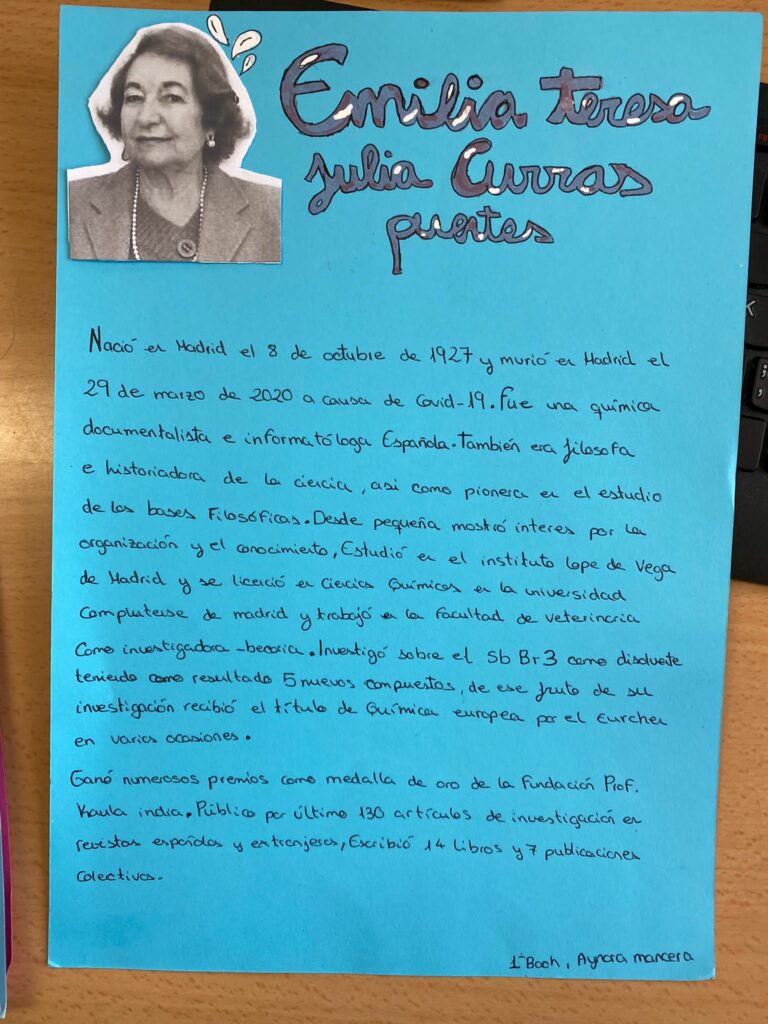 Emilia Teresa
Julia Curras
puentes
Nació en Madrid el 8 de octubre de 1927 y murió en Madrid el
29 de marzo de 2020 a causa de Covid-19. Fue una química
documentalista e informatóloga Española. También era filosofa
e historiadora de la ciencia, asi como pionera en el estudio
de las bases Filosóficas. Desde pequeña mostró interes por la
organización y el conocimiento, Estudió en el instituto lope de Vega
de Madrid y se licenció en ciencias Químicas en la universidad
Complutense de madrid y trabajó en la Facultad de veterinaria
Como investigadora-becaria. Investigó sobre el Sb Br3 como disolvente
teniendo como resultado 5 nuevos compuestos, de ese fruto de su
investigación recibió el título de Química europea por el Eurchem
en varias ocasiones.
Ganó numerosos premios como medalla de oro de la Fundación Prof.
Kaula india. Público por último 130 artículos de investigación en
revistas españolas y extranjeras, Escribió 14 libros y 7 publicaciones
colectivas.
1º Bach, Aynara mancera